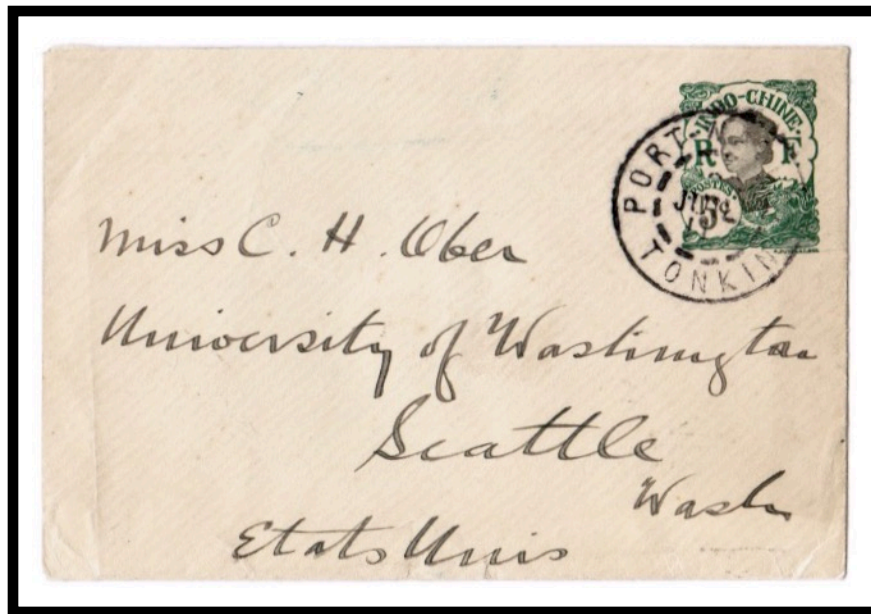 INDO-CHINE
R F
POSTES
5
PORT
TONKIN
Miss C. H. Ober
University of Washington
Seattle
Wash
Etats Unis